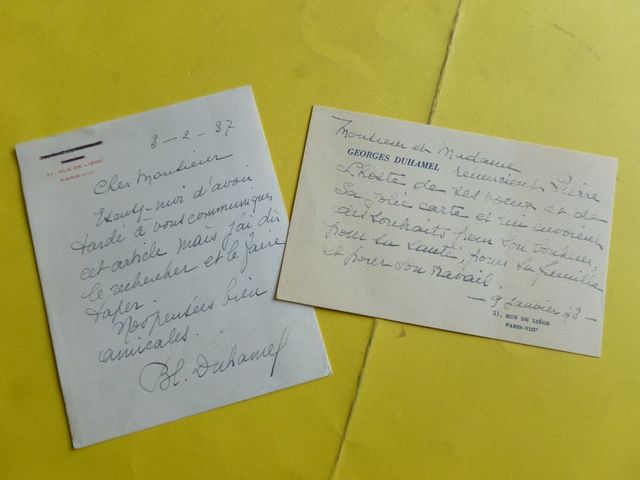 3-2-37
31, RUE DE LIÈGE
PARIS-VIIIᵉ
Cher Monsieur
Excusez-moi d'avoir
tardé à vous communiquer
cet article mais j'ai dû
le rechercher et le faire
taper.
Nos pensées bien
amicales.
Bl. Duhamel
Monsieur et Madame
GEORGES DUHAMEL remercient Pierre
Lhoste de ses voeux et de
sa jolie carte et lui envoient
des souhaits pour son bonheur,
pour sa santé, pour sa famille
et pour son travail.
- 9 Janvier 43 -
31, RUE DE LIÈGE
PARIS-VIIIᵉ